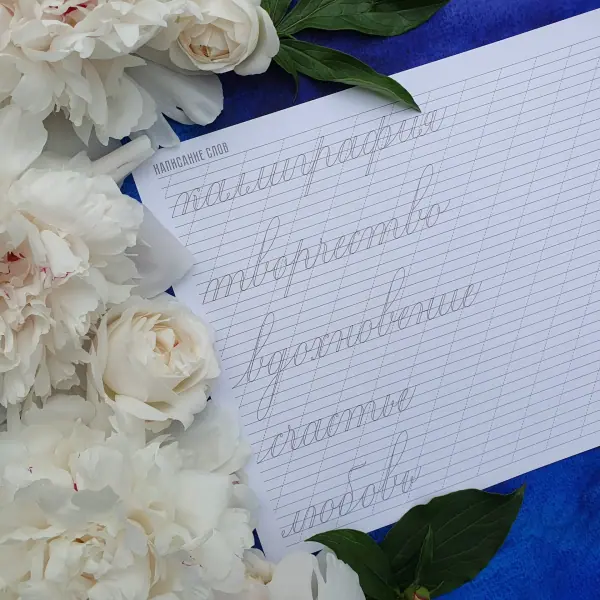 НАПИСАНИЕ СЛОВ
каллиграфия
творчество
вдохновение
счастье
любовь